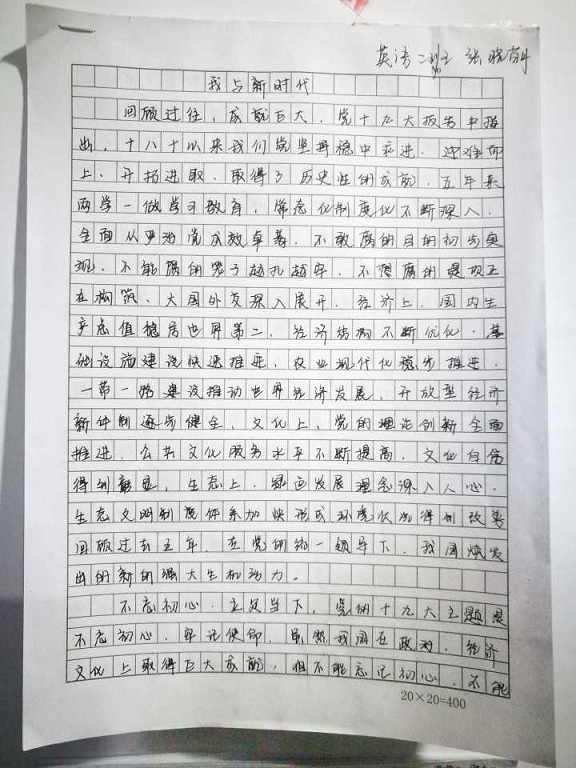 英语二班 张晓
我与新时代
回顾过往，成就巨大，党十九大报告中指
出，十八大以来我们党坚持稳中求进，迎难而
上，开拓进取，取得了历史性的成就，五年来
两学一做学习教育，常态化制度化不断深入，
全面从严治党成效卓著，不敢腐的目的初步实
现，不能腐的笼子越扎越牢，不想腐的堤坝正
在构筑，大国外交深入展开，经济上，国内生
产总值稳居世界第二，经济结构不断优化，基
础设施建设快速推进，农业现代化稳步推进，
一带一路建设推动世界经济发展，开放型经济
新体制逐步健全，文化上，党的理论创新全面
推进，公共文化服务水平不断提高，文化自信
得到彰显，生态上，绿色发展理念深入人心，
生态文明制度体系加快形成环境状况得到改善
回顾过去五年，在党的统一领导下，我国焕发
出的新的强大生机活力。
不忘初心，立足当下，党的十九大主题是
不忘初心，牢记使命，虽然我国在政治，经济
文化上取得巨大成就，但不能忘记初心，不能
20×20=400